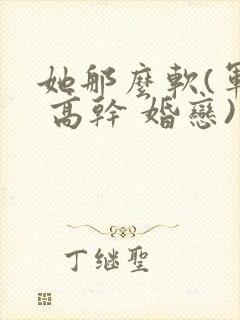 她那麼軟(軍
高幹 婚戀)
丁继聖